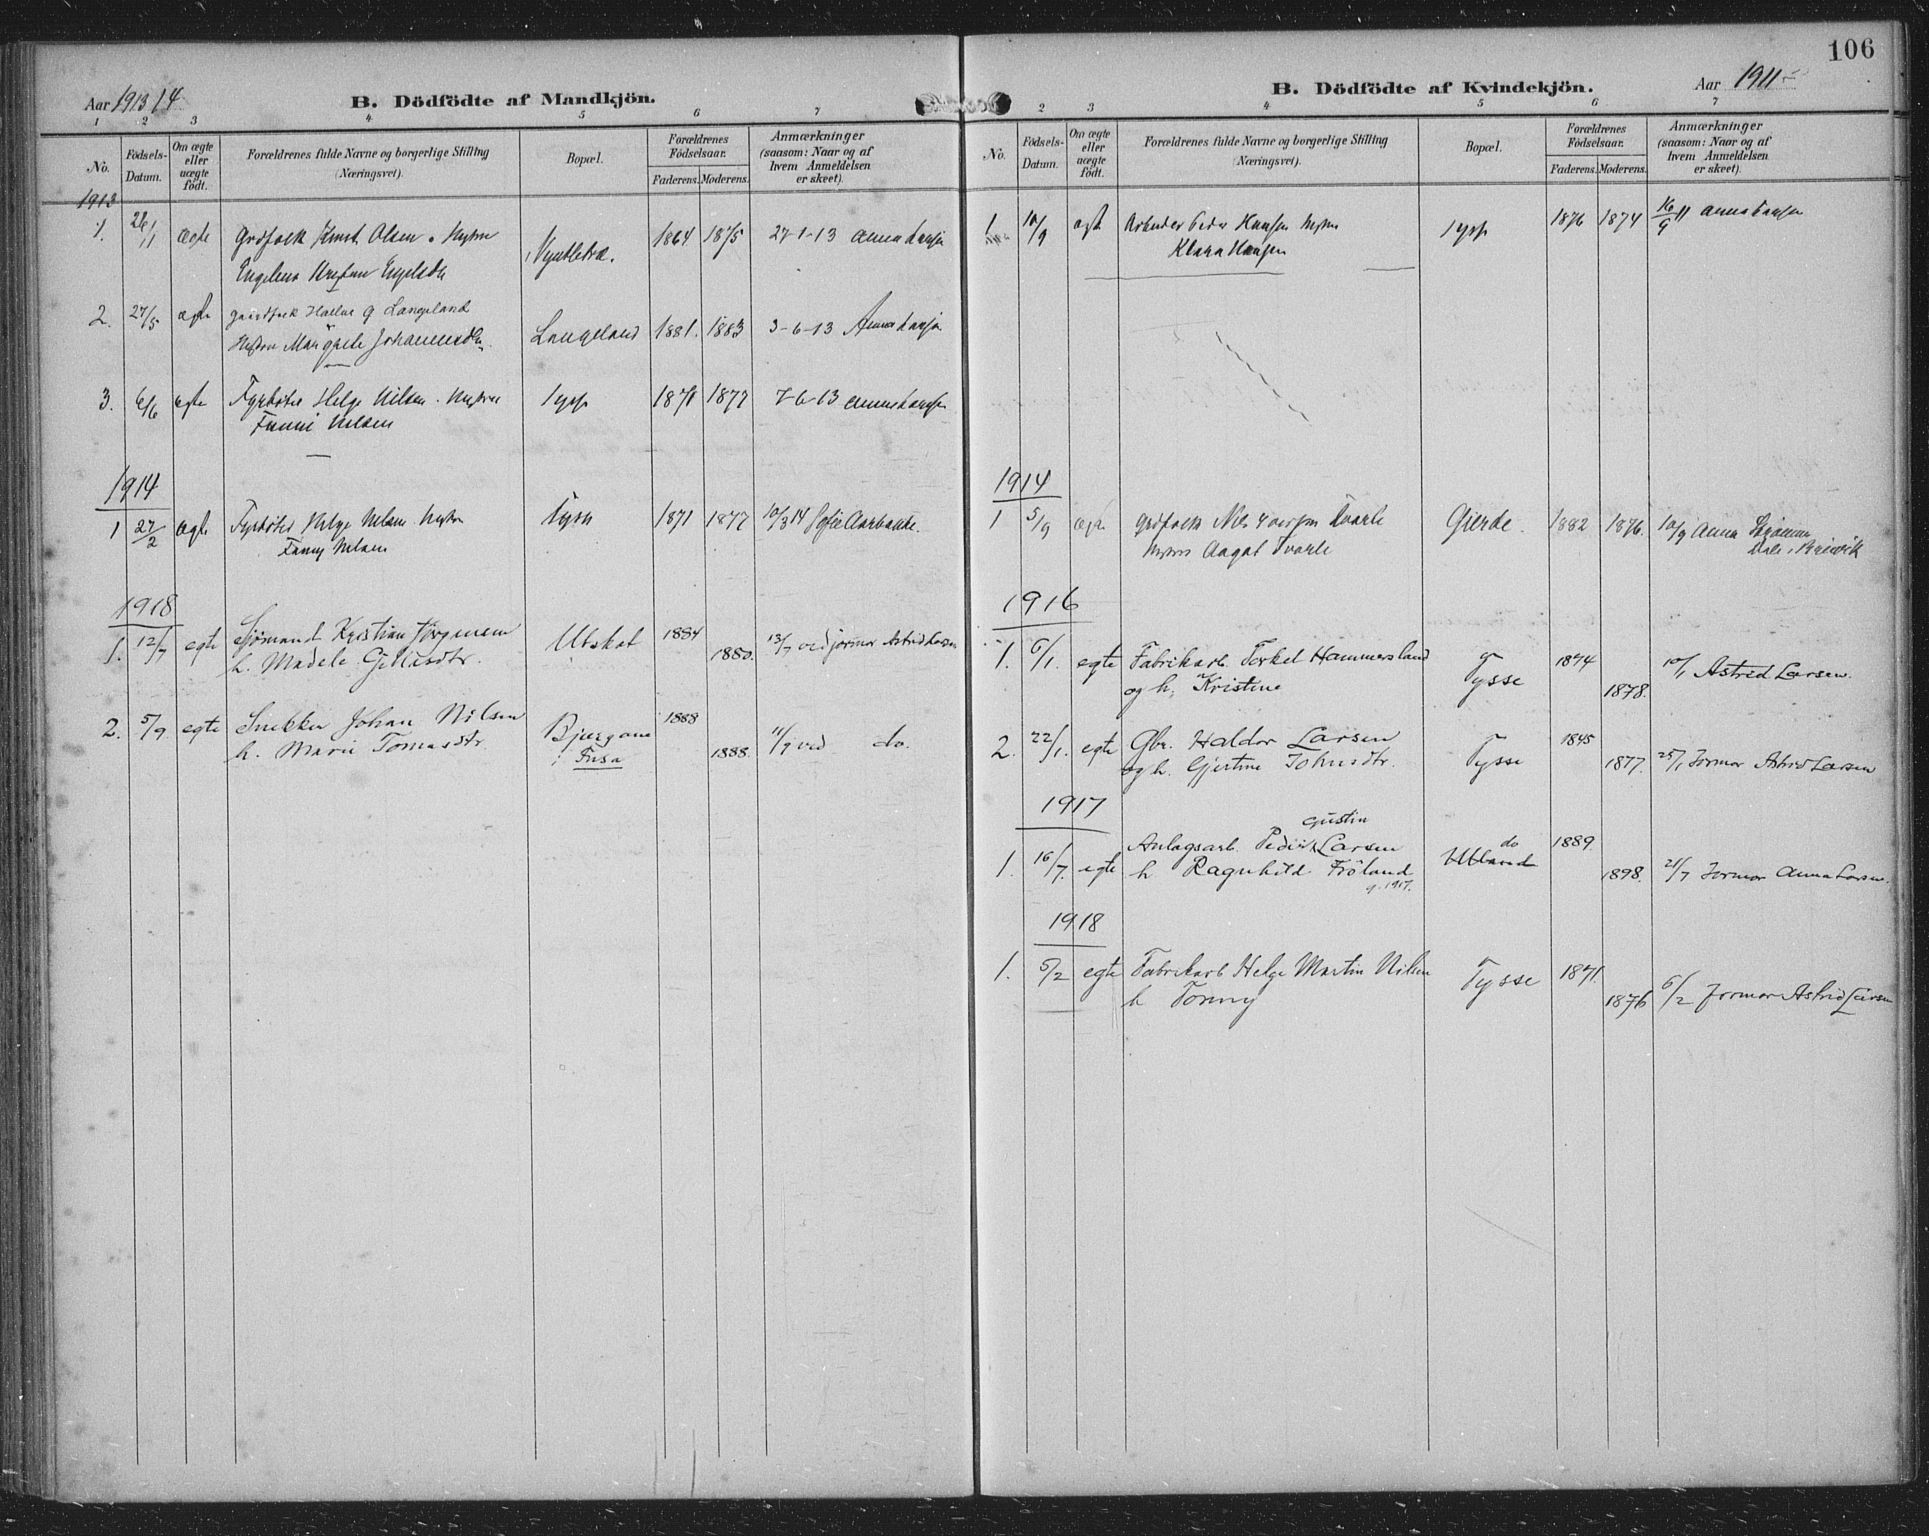 Aar 1913 14
B. Dödfödte af Mandkjön.
1 2 3 4 5 6 7
No.
Födsels-Datum.
Om ægte eller uægte födt.
Forældrenes fulde Navne og borgerlige Stilling
(Næringsvei).
Bopæl.
Forældrenes Födselsaar.
Faderens. Moderens.
Anmærkninger
(saasom: Naar og af
hvem Anmeldelsen
er skeet).
1913
1. 26/1 ægte Grdfolk Olsen o Hustru 1864 1875 27-1-13 Anna Larsen
Engelina
2. 27/5 ægte G Langeland
Hustru Margrete Johannesdtr. Langeland 1881. 1883 3-6-13 Anna Larsen
3. 6/6 egte Fyrböter Helge Nilsen. Hustru Tysse 1871 1877 7-6-13 Anna Larsen
Fanni Nilsen
1914
1 27/2 ægte Fyrböter Helge Nilsen Hustru Tysse 1871 1877 10/3 14 Sofie Aarbakke.
Fanny Nilsen
1918
1. 12/7 egte Sjömand Kristian Jörgensen Utskot 1884 1880. 13/7 ved jormor Astrid Larsen
h. Madele
2. 5/9 egte Snekker Johan Nilsen Bjørgane 1888 1888. 11/9 ved do.
h. Marie Tomasdtr. i Fusa
106
Aar 1911
B. Dödfödte af Kvindekjön.
2 3 4 5 6 7
No.
Födsels-Datum.
Om ægte eller uægte födt.
Forældrenes fulde Navne og borgerlige Stilling
(Næringsvei).
Bopæl.
Forældrenes Födselsaar.
Faderens. Moderens.
Anmærkninger
(saasom: Naar og af
hvem Anmeldelsen
er skeet).
1 10/9 ægt Arbeider Peder Hansen Hustru Tysse 1876 1874 16/9 11 Anna Larsen
Klara Hansen
1914
1 5/9 ægte Grdfolk Nils Gierde. 1882 1876. 10/9 Anna
Hustru Aagot
1916
1. 6/1. egte Fabrikarb. Torkel Hammersland Tysse 1874 1878. 10/1 Astrid Larsen.
og h. Kristine
2. 22/1. egte Gbr. Haldor Larsen Tysse 1845 1877. 25/1 Jormor Astrid Larsen
og h. Gjertine Johnsdtr.
1917
gustin
1. 16/7. egte Anlagsarb. Larsen do 1889. 1898. 21/7 Jormor Anna Larsen.
h Ragnhild Fröland
g. 1917.
1918
1. 5/2 egte Fabrikarb Helge Martin Nilsen Tysse 1871. 1876 6/2 Jormor Astrid Larsen
h